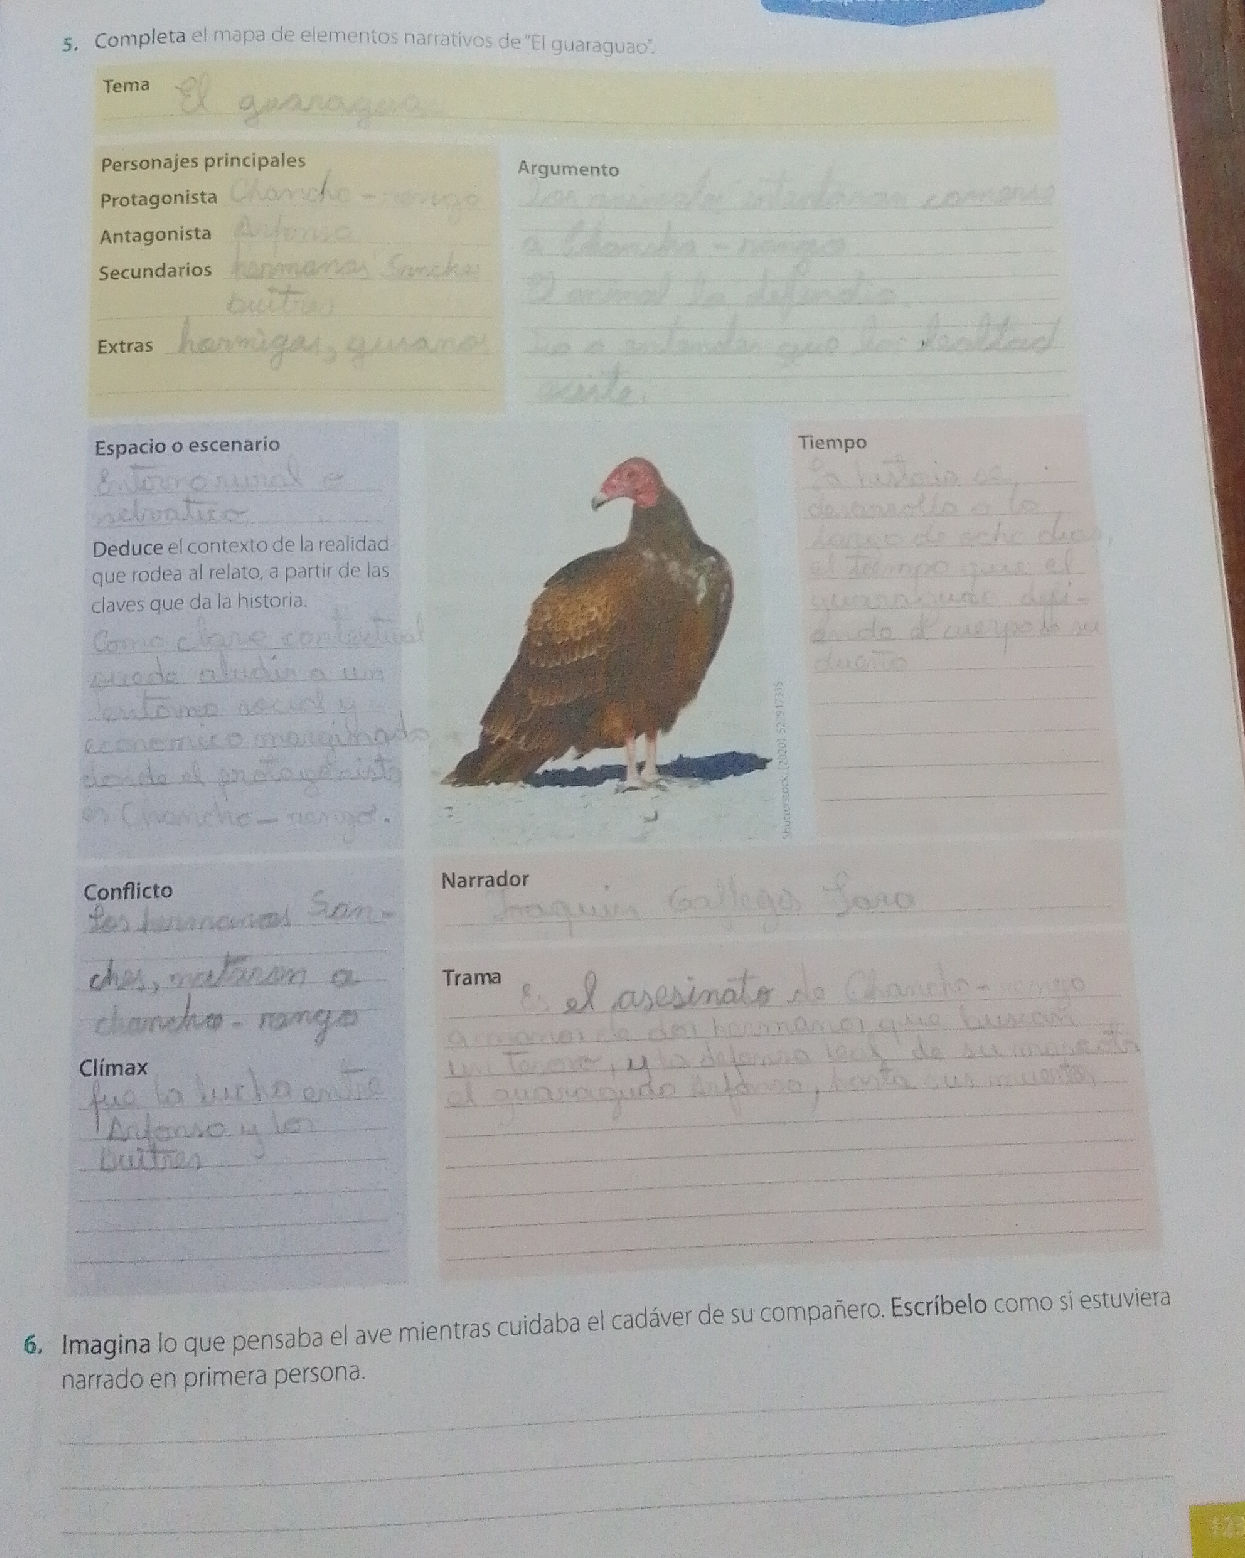 5. Completa el mapa de elementos narrativos de "El guaraguao".
Tema El guaragua
Personajes principales
Protagonista Chancho - rengo
Antagonista Anfonso
Secundarios hermanos Sanches
buitres
Extras hormigas, gusanos
Argumento
Los animales intentaron comerse
a Chancho - rengo
animal lo defendio.
a entender que la lealtad
existe.
Espacio o escenario
Entorno rural o
selvatico
Deduce el contexto de la realidad
que rodea al relato, a partir de las
claves que da la historia.
Como clave contextual
puede aludir a un
entorno social y
economico marginado
donde el protagonista
es Chancho - rengo.
Tiempo
La historia se
desarrolla a lo
largo de ocho dias,
el tiempo que el
guaraguao defi-
ende el cuerpo de su
dueño
Shutterstock, (2020), 522917335
Conflicto
Los hermanos San-
ches, mataron a
chancho - rengo
Clímax
fue la lucha entre
Anfonso y los
buitres
Narrador
Joaquin Gallegos Lara
Trama
Es el asesinato de Chancho - rengo
a manos de dos hermanos que buscan
un tesoro, y la defensa leal de su mascota
el guaraguao Anfonso, hasta sus muertes
6. Imagina lo que pensaba el ave mientras cuidaba el cadáver de su compañero. Escríbelo como si estuviera
narrado en primera persona.